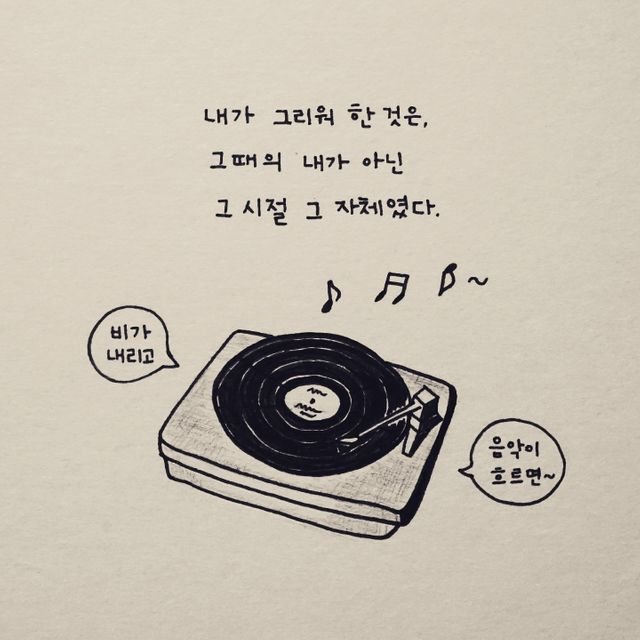 내가 그리워 한 것은,
그때의 내가 아닌
그 시절 그 자체였다.
비가
내리고
음악이
흐르면~